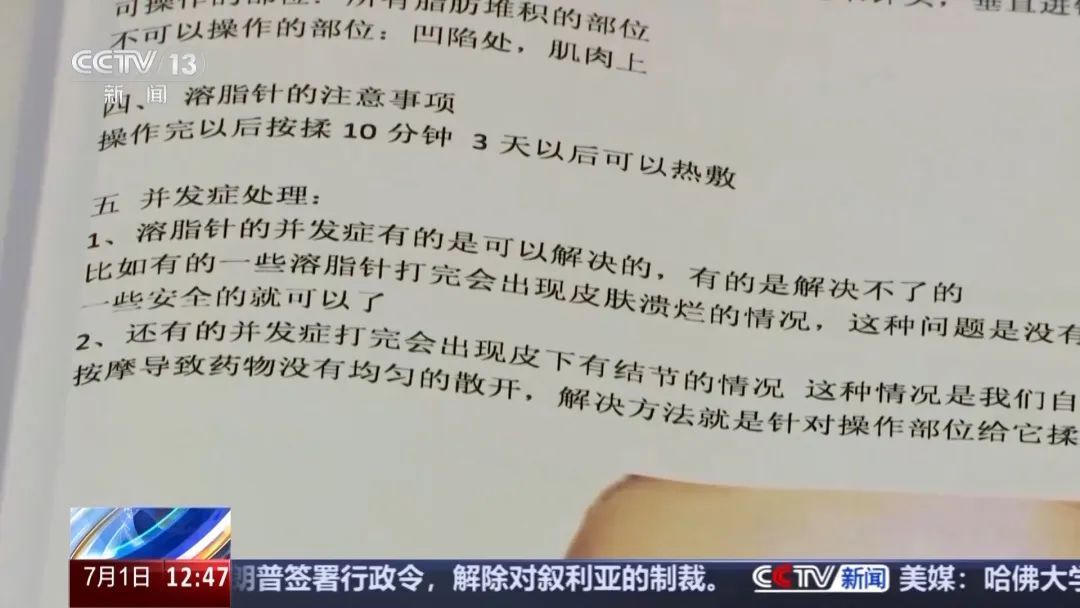 可操作的部位：所有脂肪堆积的部位
不可以操作的部位：凹陷处，肌肉上
四、 溶脂针的注意事项
操作完以后按揉 10 分钟 3 天以后可以热敷
五 并发症处理：
1、溶脂针的并发症有的是可以解决的，有的是解决不了的
比如有的一些溶脂针打完会出现皮肤溃烂的情况，这种问题是没有
一些安全的就可以了
2、还有的并发症打完会出现皮下有结节的情况 这种情况是我们自
按摩导致药物没有均匀的散开，解决方法就是针对操作部位给它揉
CCTV 13
新闻
7月1日 12:47
朗普签署行政令，解除对叙利亚的制裁。 CCTV 新闻 美媒：哈佛大学